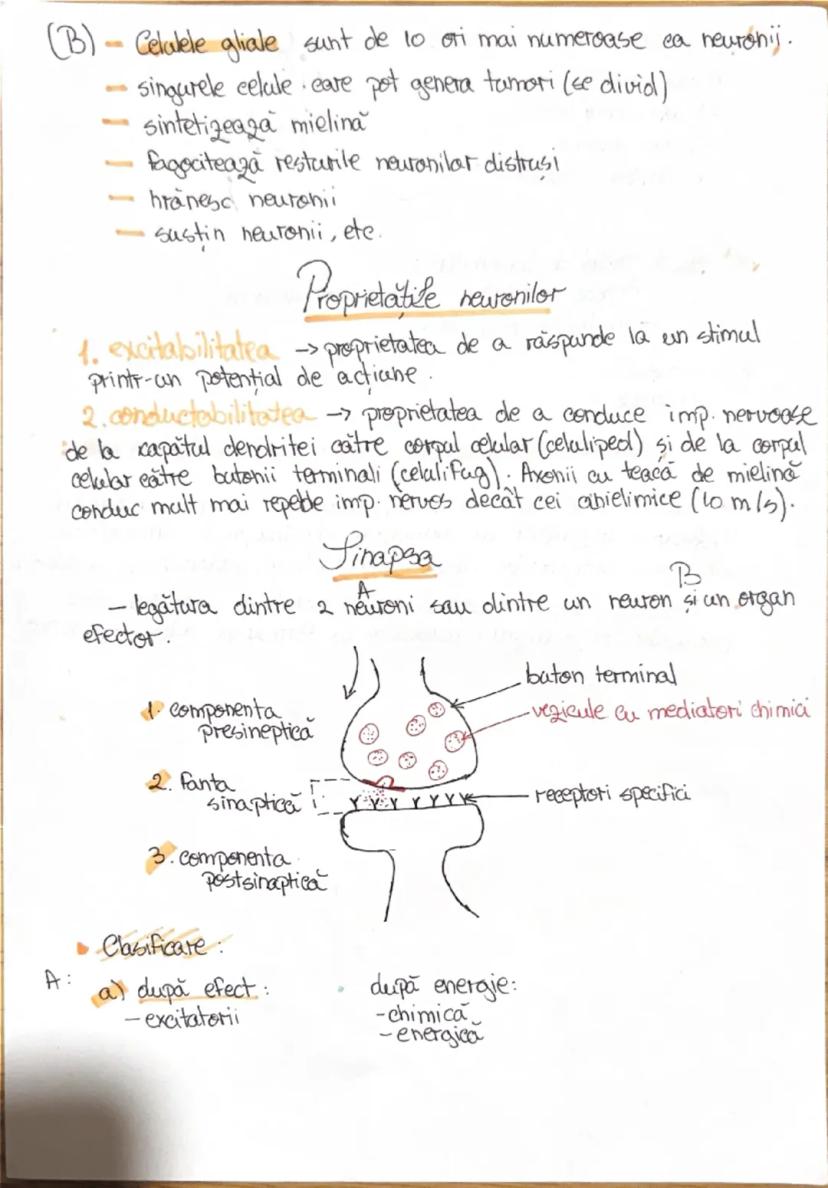 (B) - Celulele gliale sunt de 10 ori mai numeroase ca neuronii.
- singurele celule care pot genera tumori (se divid)
- sintetizează mielină
- fagocitează resturile neuronilor distruși
- hrănesc neuronii
- susțin neuronii, etc.
Proprietățile neuronilor
1. excitabilitatea -> proprietatea de a răspunde la un stimul
printr-un potențial de acțiune.
2. conductabilitatea -> proprietatea de a conduce imp. nervoase
de la capătul dendritei către corpul celular (celulipet) și de la corpul
celular către butonii terminali (celulifug). Axonii cu teacă de mielină
conduc mult mai repede imp. nervos decât cei amielinice (10 m/s).
Sinapsa
A B
- legătura dintre 2 neuroni sau dintre un neuron și un organ
efector.
buton terminal
vezicule cu mediatori chimici
1. componenta
presineptică
2. fanta
sinaptică
receptori specifici
3. componenta
postsinaptică
Clasificare:
A:
a) după efect:
- excitatorii
după energie:
- chimică
- energică